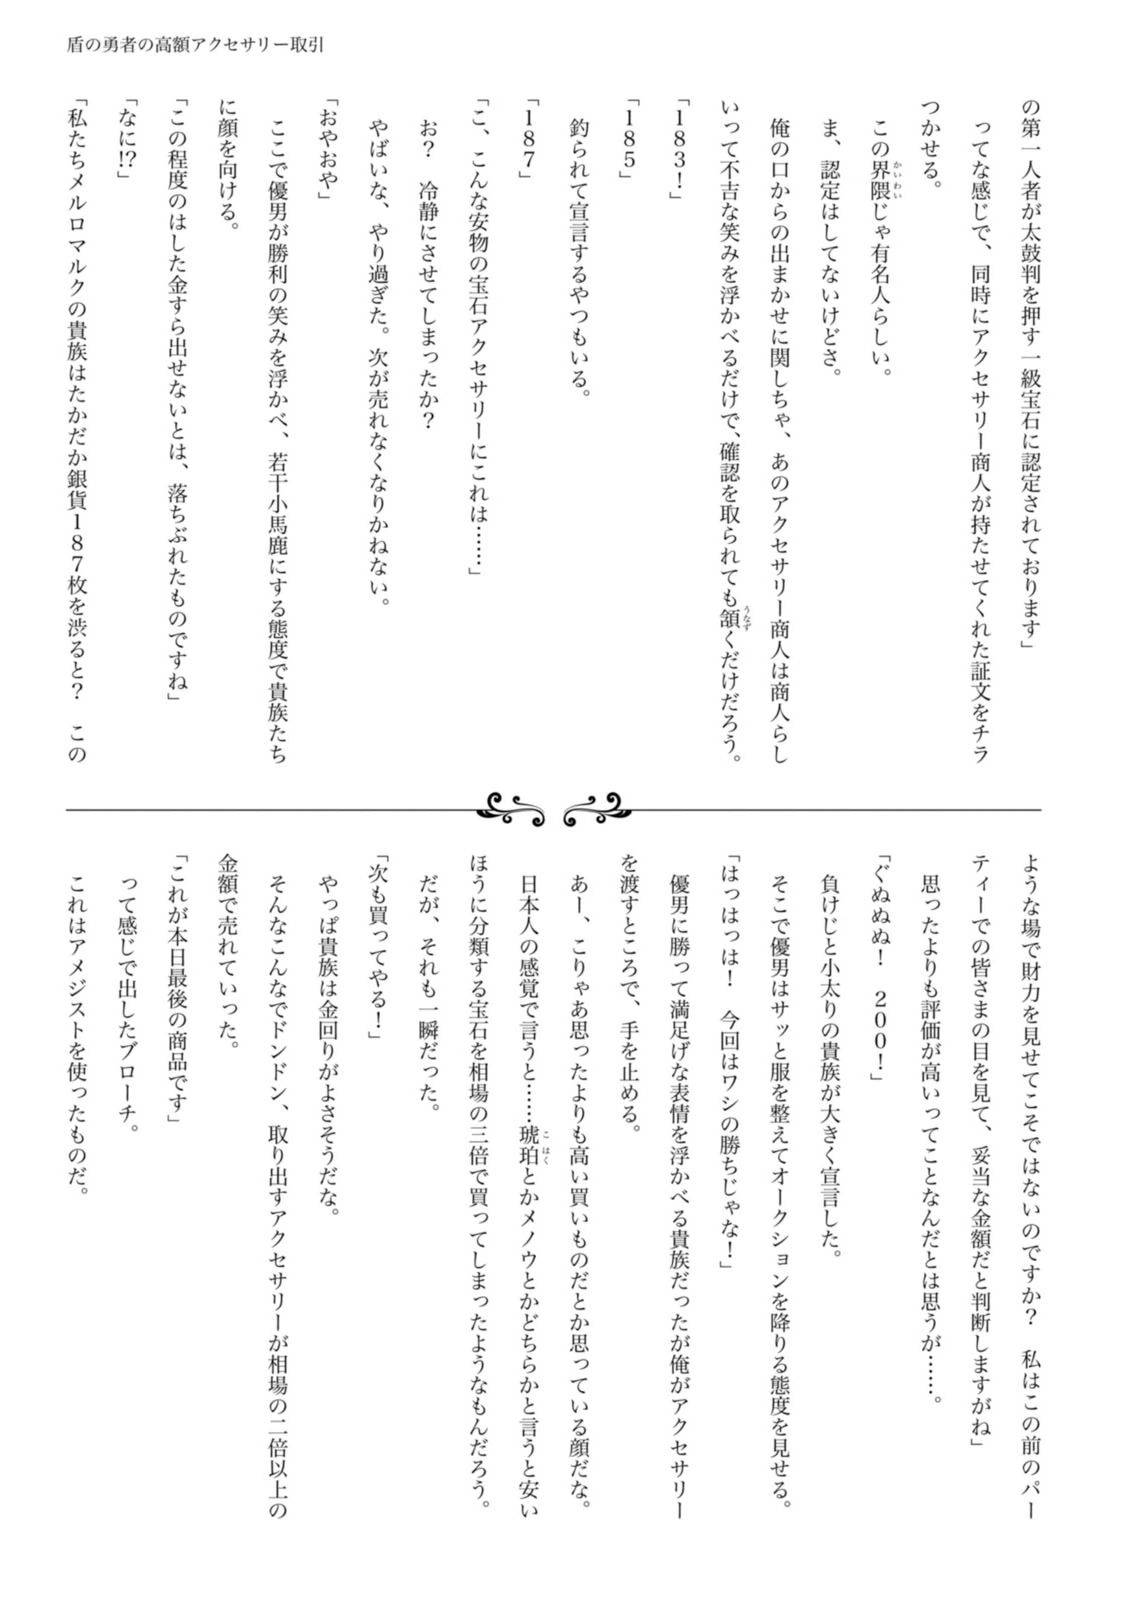 盾の勇者の高額アクセサリー取引
の第一人者が太鼓判を押す一級宝石に認定されております」
　ってな感じで、同時にアクセサリー商人が持たせてくれた証文をチラ
つかせる。
　この界隈じゃ有名人らしい。
　ま、認定はしてないけどさ。
　俺の口からの出まかせに関しちゃ、あのアクセサリー商人は商人らし
いって不吉な笑みを浮かべるだけで、確認を取られても頷くだけだろう。
「183！」
「185」
　釣られて宣言するやつもいる。
「187」
「こ、こんな安物の宝石アクセサリーにこれは……」
　お？　冷静にさせてしまったか？
　やばいな、やり過ぎた。次が売れなくなりかねない。
「おやおや」
　ここで優男が勝利の笑みを浮かべ、若干小馬鹿にする態度で貴族たち
に顔を向ける。
「この程度のはした金すら出せないとは、落ちぶれたものですね」
「なに!?」
「私たちメルロマルクの貴族はたかだか銀貨187枚を渋ると？　この
ような場で財力を見せてこそではないのですか？　私はこの前のパー
ティーでの皆さまの目を見て、妥当な金額だと判断しますがね」
　思ったよりも評価が高いってことなんだとは思うが……。
「ぐぬぬぬ！　200！」
　負けじと小太りの貴族が大きく宣言した。
　そこで優男はサッと服を整えてオークションを降りる態度を見せる。
「はっはっは！　今回はワシの勝ちじゃな！」
　優男に勝って満足げな表情を浮かべる貴族だったが俺がアクセサリー
を渡すところで、手を止める。
　あー、こりゃあ思ったよりも高い買いものだとか思っている顔だな。
　日本人の感覚で言うと……琥珀とかメノウとかどちらかと言うと安い
ほうに分類する宝石を相場の三倍で買ってしまったようなもんだろう。
　だが、それも一瞬だった。
「次も買ってやる！」
　やっぱ貴族は金回りがよさそうだな。
　そんなこんなでドンドン、取り出すアクセサリーが相場の二倍以上の
金額で売れていった。
「これが本日最後の商品です」
　って感じで出したブローチ。
　これはアメジストを使ったものだ。